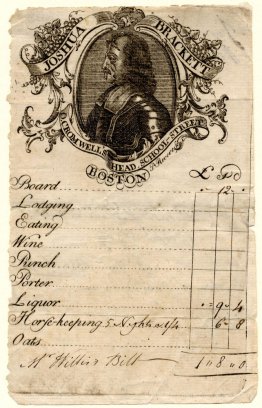 JOSHUA BRACKETT
O. CROMWELLS HEAD SCHOOL STREET
BOSTON
£ S d
Board - 12 -
Lodging
Eating
Wine
Punch
Porter
Liquor - 9 - 4
Horse keeping 5 Nights a 1/4 6 - 8
Oats
Mr Bill 1 " 8 " 0